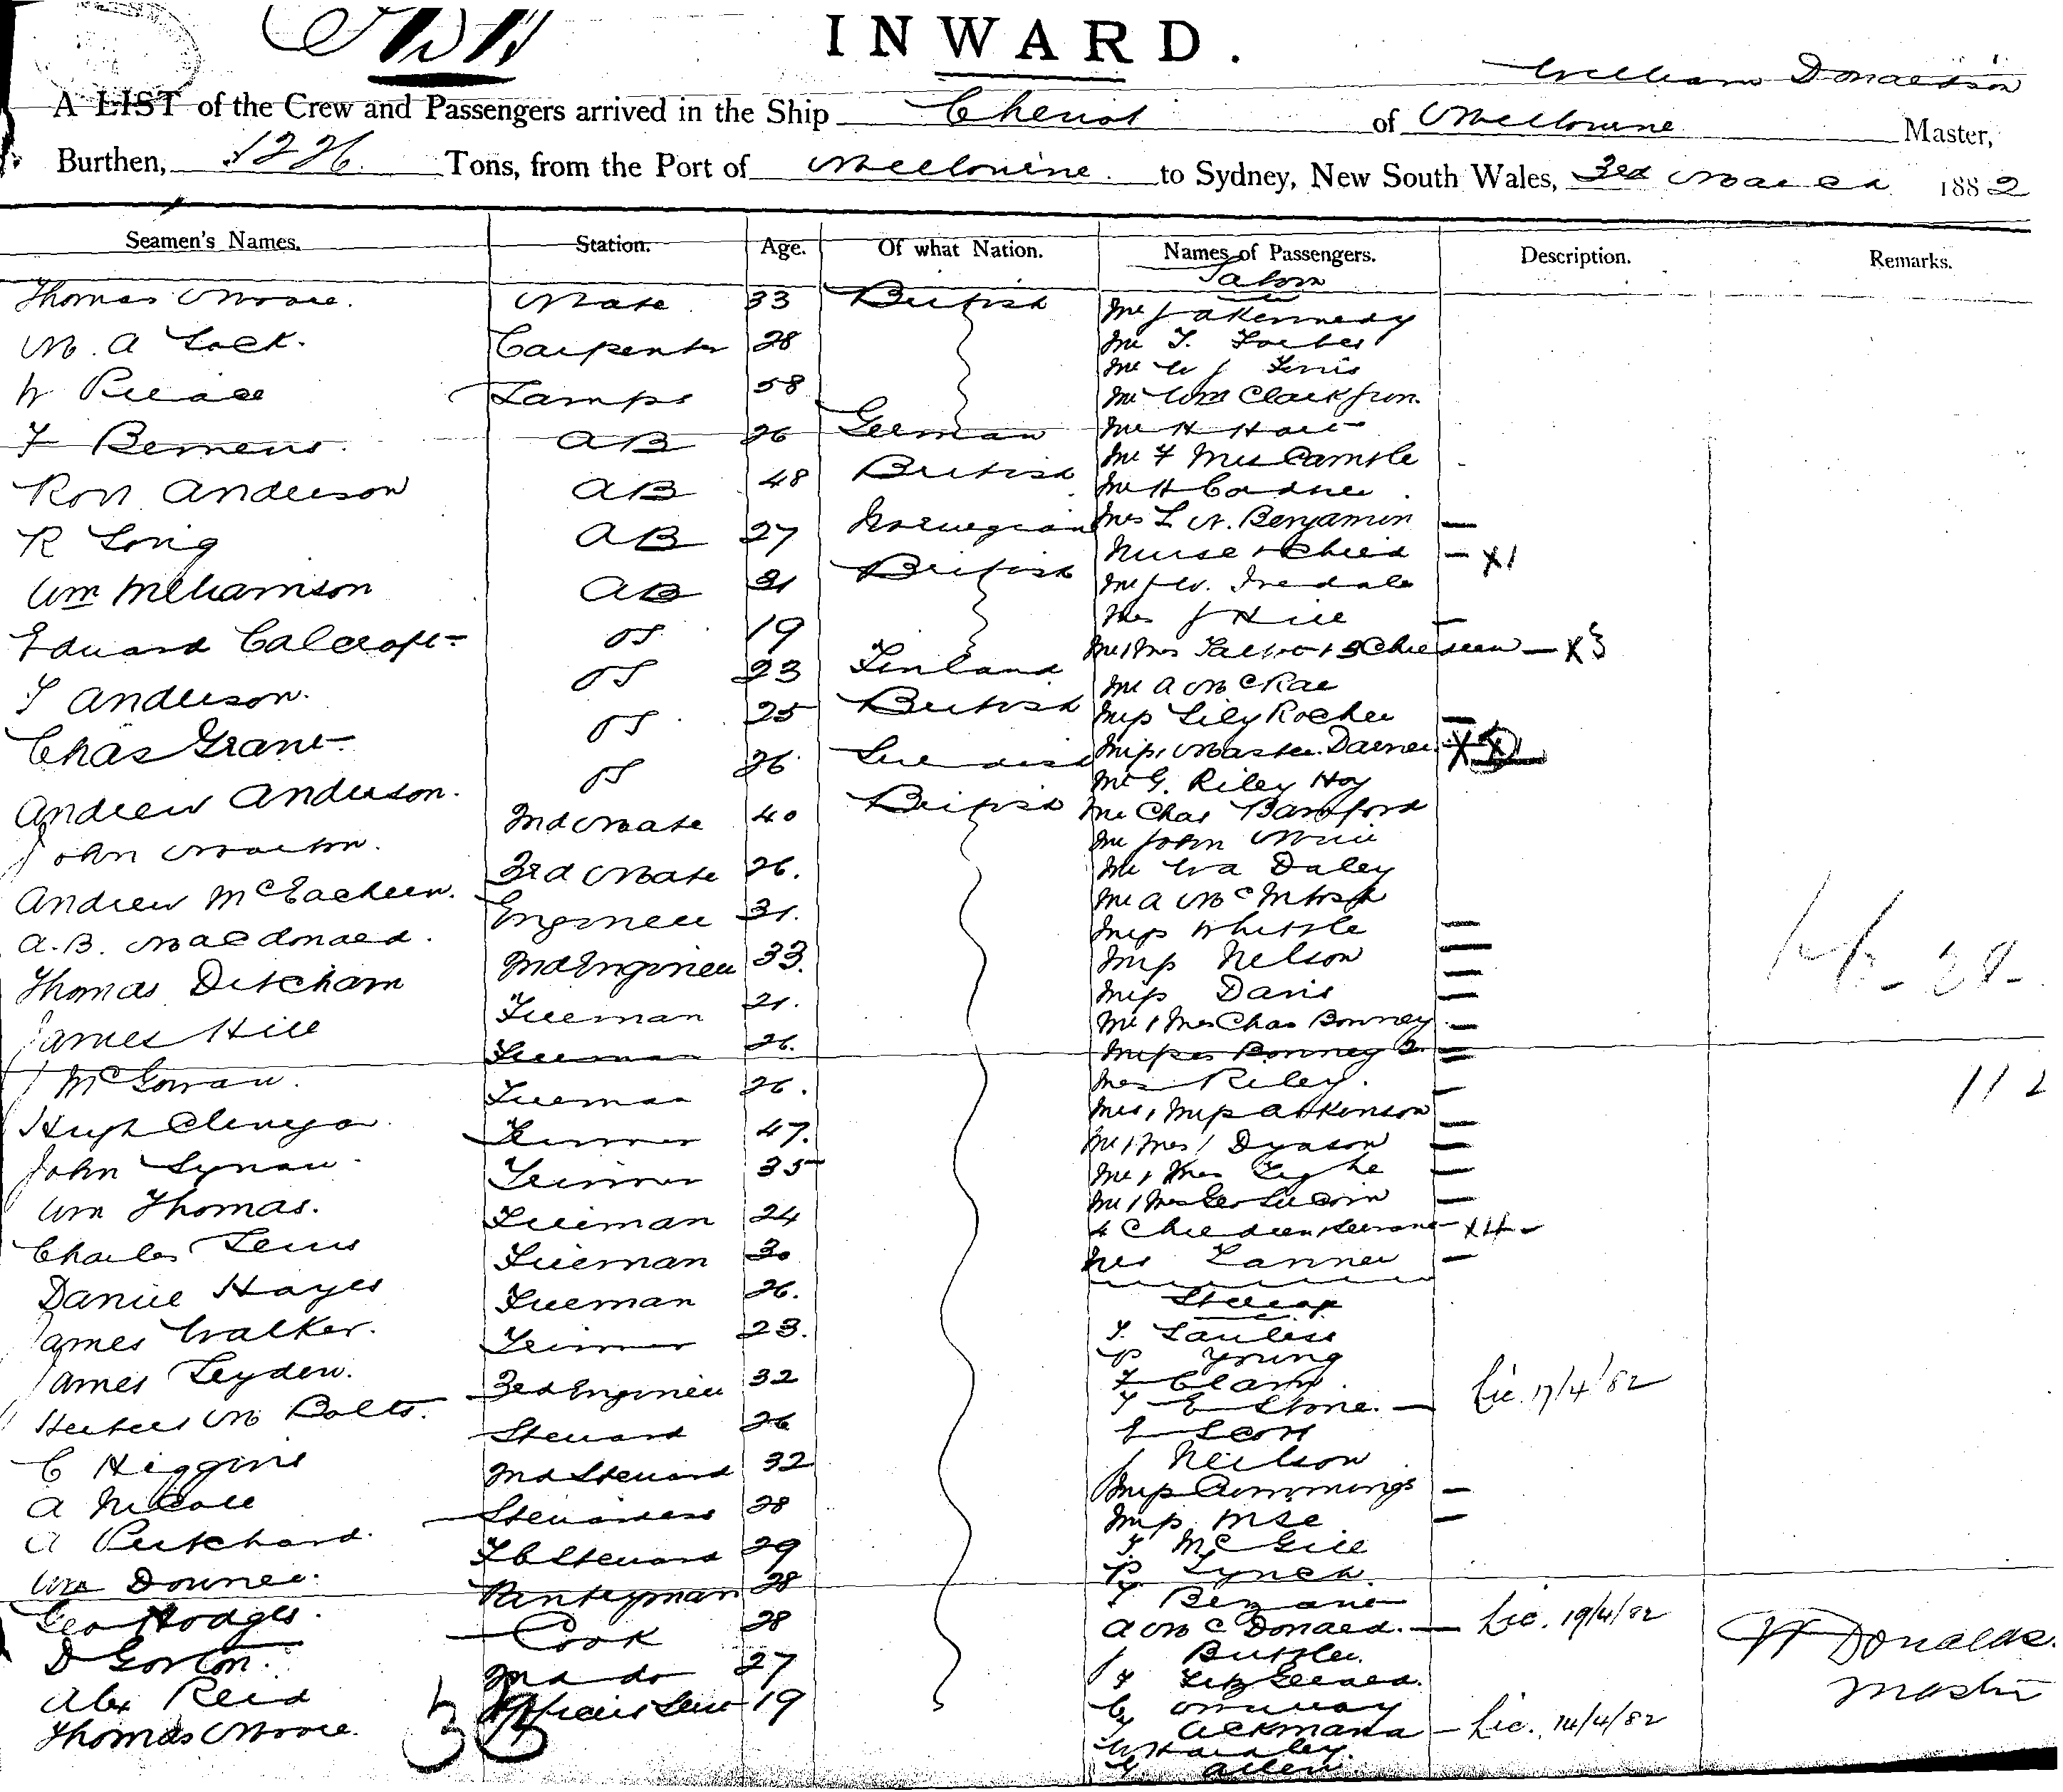 INWARD.
William Donaldson
A LIST of the Crew and Passengers arrived in the Ship Cheviot of Melbourne Master,
Burthen, 1226. Tons, from the Port of Melbourne. to Sydney, New South Wales, 3rd March 1882
Seamen's Names. Station. Age. Of what Nation. Names of Passengers. Description. Remarks.
Saloon
Thomas Moore. Mate 33 British Mr J A Kennedy
M. A Lock. Carpenter 28 Mr T. Forbes
Mr W J Ferris
W Pierce Lamps 58 Mr Wm Clark junr.
F Bemens. AB 26 German Mr H Hart
Mr & Mrs Camble
Robt Anderson AB 48 British Mr H Cordner.
R Long AB 27 Norwegian Mrs L N. Benjamin —
Nurse & Child — x1
Wm Williamson AB 31 British Mr J W. Iredale
Mrs J Hill —
Edward Calcraft OS 19 Mr & Mrs Talbot & 3 Children — x3
T Anderson. OS 23 Finland Mr A McRae
Chas Grant. OS 25 British Miss Lily Rocher —
Miss, Master Darner.
Andrew Anderson. OS 26 Swedish Mr G. Riley Hoy
John Morton. 2nd Mate 40 British Mr Chas Bamford
Mr John Muir
Andrew McEachern. 3rd Mate 26. Mr Wa Daley
A.B. Macdonald. Engineer 31. Mr A McIntosh
Miss Whittle —
Thomas Ditcham 2nd Engineer 33. Miss Nelson —
Miss Davis —
James Hill Fireman 21. Mr & Mrs Chas Bonney —
J McGowan. Fireman 26. Misses Bonney 2 —
Hugh Clenga. Fireman 26. Mrs Riley. — 112
Mrs, Miss Atkinson —
John Lynan. Trimmer 47. Mr & Mrs J Dyason —
Wm Thomas. Trimmer 35 Mr & Mrs Tighe —
Mr & Mrs Geo Lucorn —
Charles Lewis Fireman 24 4 Children & Servant — x4 —
Daniel Hayes Fireman 30 Mrs Lanner —
James Walker. Fireman 26. Steerage
James Leyden. Trimmer 23. T. Lawless
P Young
Herbert M Bolts. 3rd Engineer 32 F Clark.
T E Stone. — Lic. 17/4/82
C Higgins Steward 26 E Scott
A Nicoll 2nd Steward 32 J Neilson
Miss Cummings —
A Pritchard. Stewardess 28 Miss Mse —
Wm Downer. F C Steward 29 T. McGill
P Lynch.
Geo Hodges. Pantryman 28 T Bezant
D Gorton. Cook 28 A McDonald. — Lic. 19/4/82
J Buttler.
Alex Reid 2nd do 27 F Fitz Gerard.
Thomas Moore. Officers Serv 19 C Murray
T Ackmana — Lic. 14/4/82
W Hardley.
G Allen
W Donaldson
Master
38